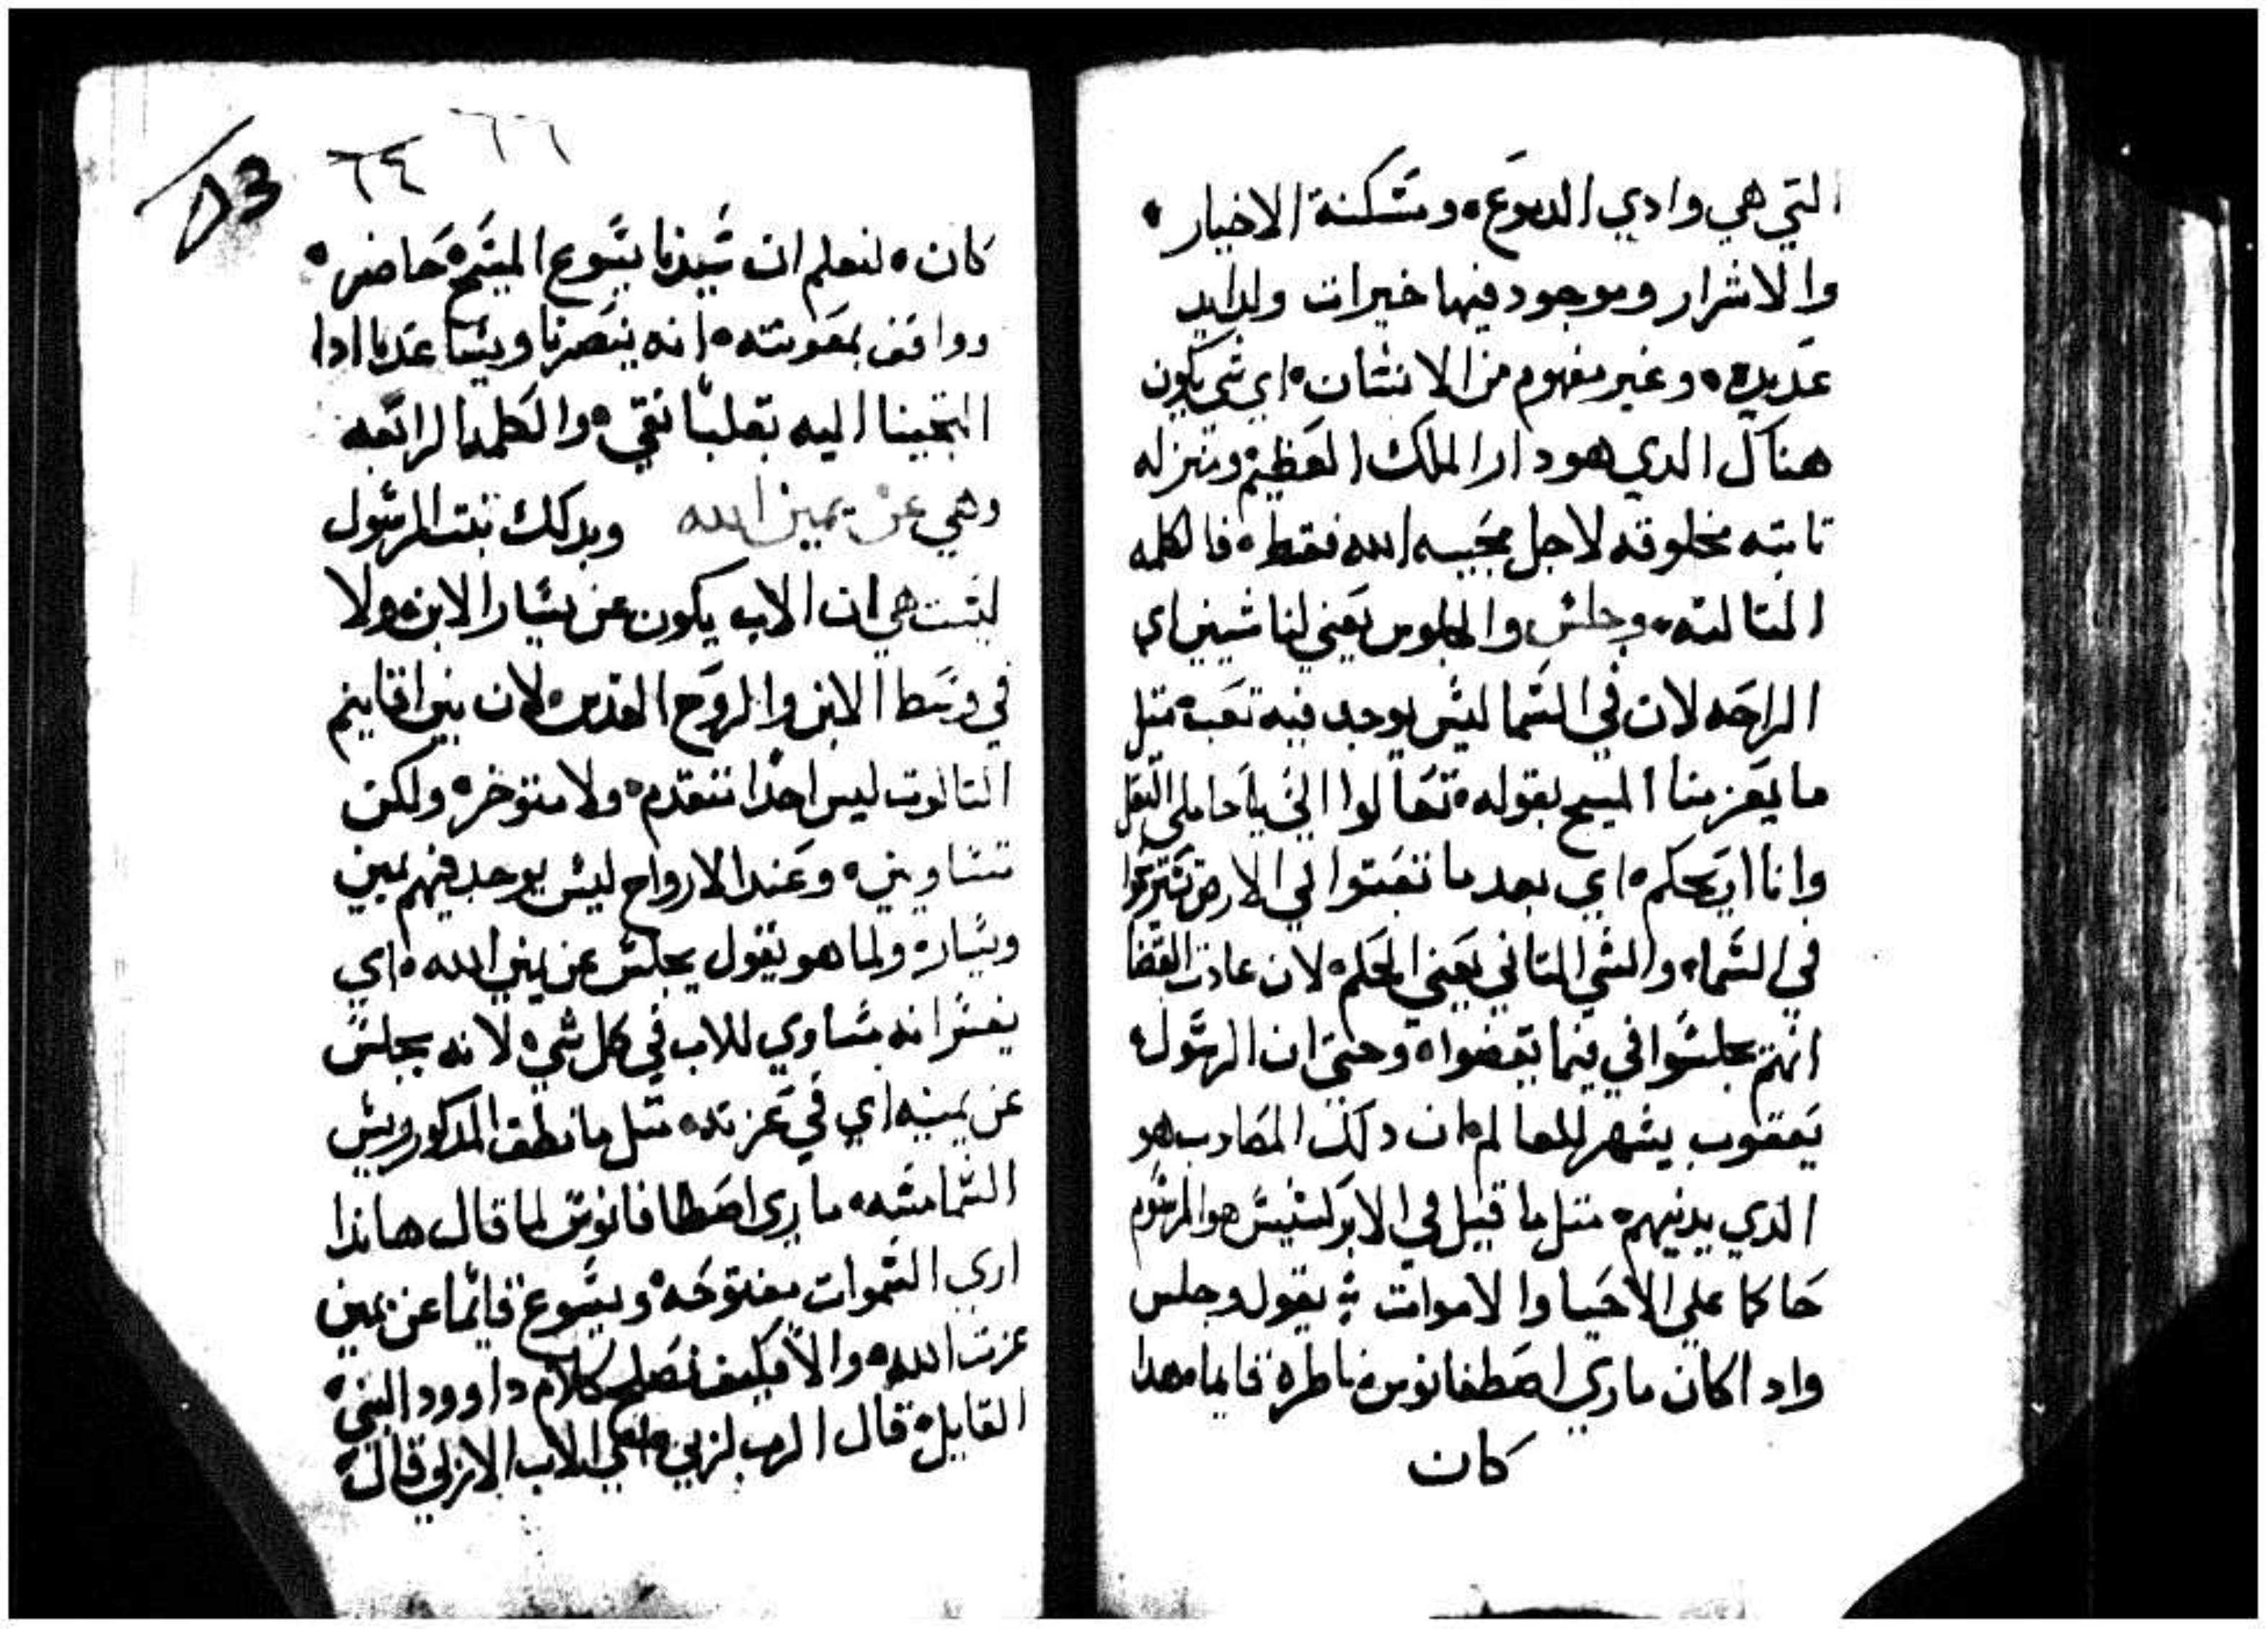 التي هي وادي الدموع ٥ ومسكنة الاخيار ٥
والاشرار وموجود فيها خيرات ولدايد
عديده ٥ وغير مفهوم من الانسان ٥ اي شي يكون
هناك الدي هو دار الملك العظيم ومنزله
تابته مخلوقه لاجل محبيه الله فقط ٥ فالكلمه
التالته ٥ وجلس والجلوس يعني لنا شيين اي
الراحه لان في السما ليس يوجد فيه تعب ٥ متل
ما يعزمنا المسيح بقوله ٥ تعالوا الي يا حاملي التقل
وانا اريحكم ٥ اي بعد ما تعبتوا في الارض تستريحوا
في السما ٥ والشي التاني يعني الحكم ٥ لان عادت القضا
انهم يجلسوا في فيما يقضوا ٥ وحتي ان الرسول
يعقوب يشهر للعالم ٥ ان دلك المصادب هو
الذي يدينهم ٥ متل ما قيل في الابركسيس هو المرسوم
حاكما علي الاحيا والاموات يقول وجلس
واد اكان ماري اصطفانوس ناطره قايما فهدا
كان
٦٦
٦٤
كان ٥ لنعلم ان سيدنا يسوع المسيح ٥ حاضر ٥
وواقف بمعونته ٥ انه ينصرنا ويساعدنا ادا
التجينا اليه بقلبا نقي ٥ والكلمه الرابعه
وهي عن يمين الله وبدلك تبت الرسول
ليست هي ان الاب يكون عن يسار الابن ٥ ولا
في وسط الابن والروح القدس ٥ لان بين اقانيم
التالوت ليس احدا متقدم ٥ ولا متوخر ٥ ولكن
متساويين ٥ وعند الارواح ليس يوجد فيهم يمين
ويساره ولما هو يقول يجلس عن يمين الله ٥ اي
يفسر انه مساوي للاب في كل شي ٥ لانه يجلس
عن يمينه اي في عزته ٥ متل ما نطق المدكور ريس
الشمامسه ٥ ماري اصطافانوس لما قال هاندا
اري السموات مفتوحه ٥ ويسوع قايما عن يمين
عزت الله ٥ والا فكيف نصلح كلام داوود النبي ٥
القايل ٥ قال الرب لربي ٥ اعني الاب الازلي قال